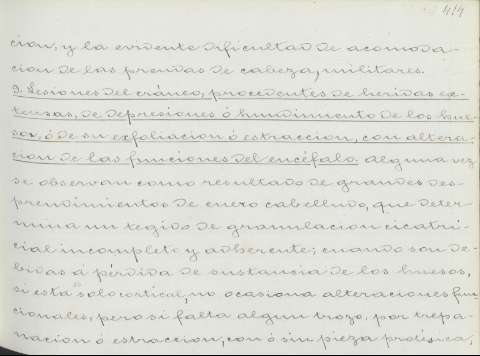 414
cion, y la evidente dificultad de acomoda-
cion de las prendas de cabeza, militares.
9. Lesiones del cráneo, procedentes de heridas ex-
tensas, de depresiones ó hundimiento de los hue-
sos, ó de su exfoliacion ó estraccion, con altera-
cion de las funciones del encéfalo. Alguna vez
se observan como resultado de grandes des-
prendimientos de cuero cabelludo, que deter-
mina un tegido de granulacion cicatri-
cial incompleto y adherente; cuando son de-
bidas á pérdida de sustansia de los huesos,
si está solo cortical, no ocasiona alteraciones fun-
cionales, pero si falta algun trozo, por trepa-
nacion ó estraccion, con ó sin pieza protésica,